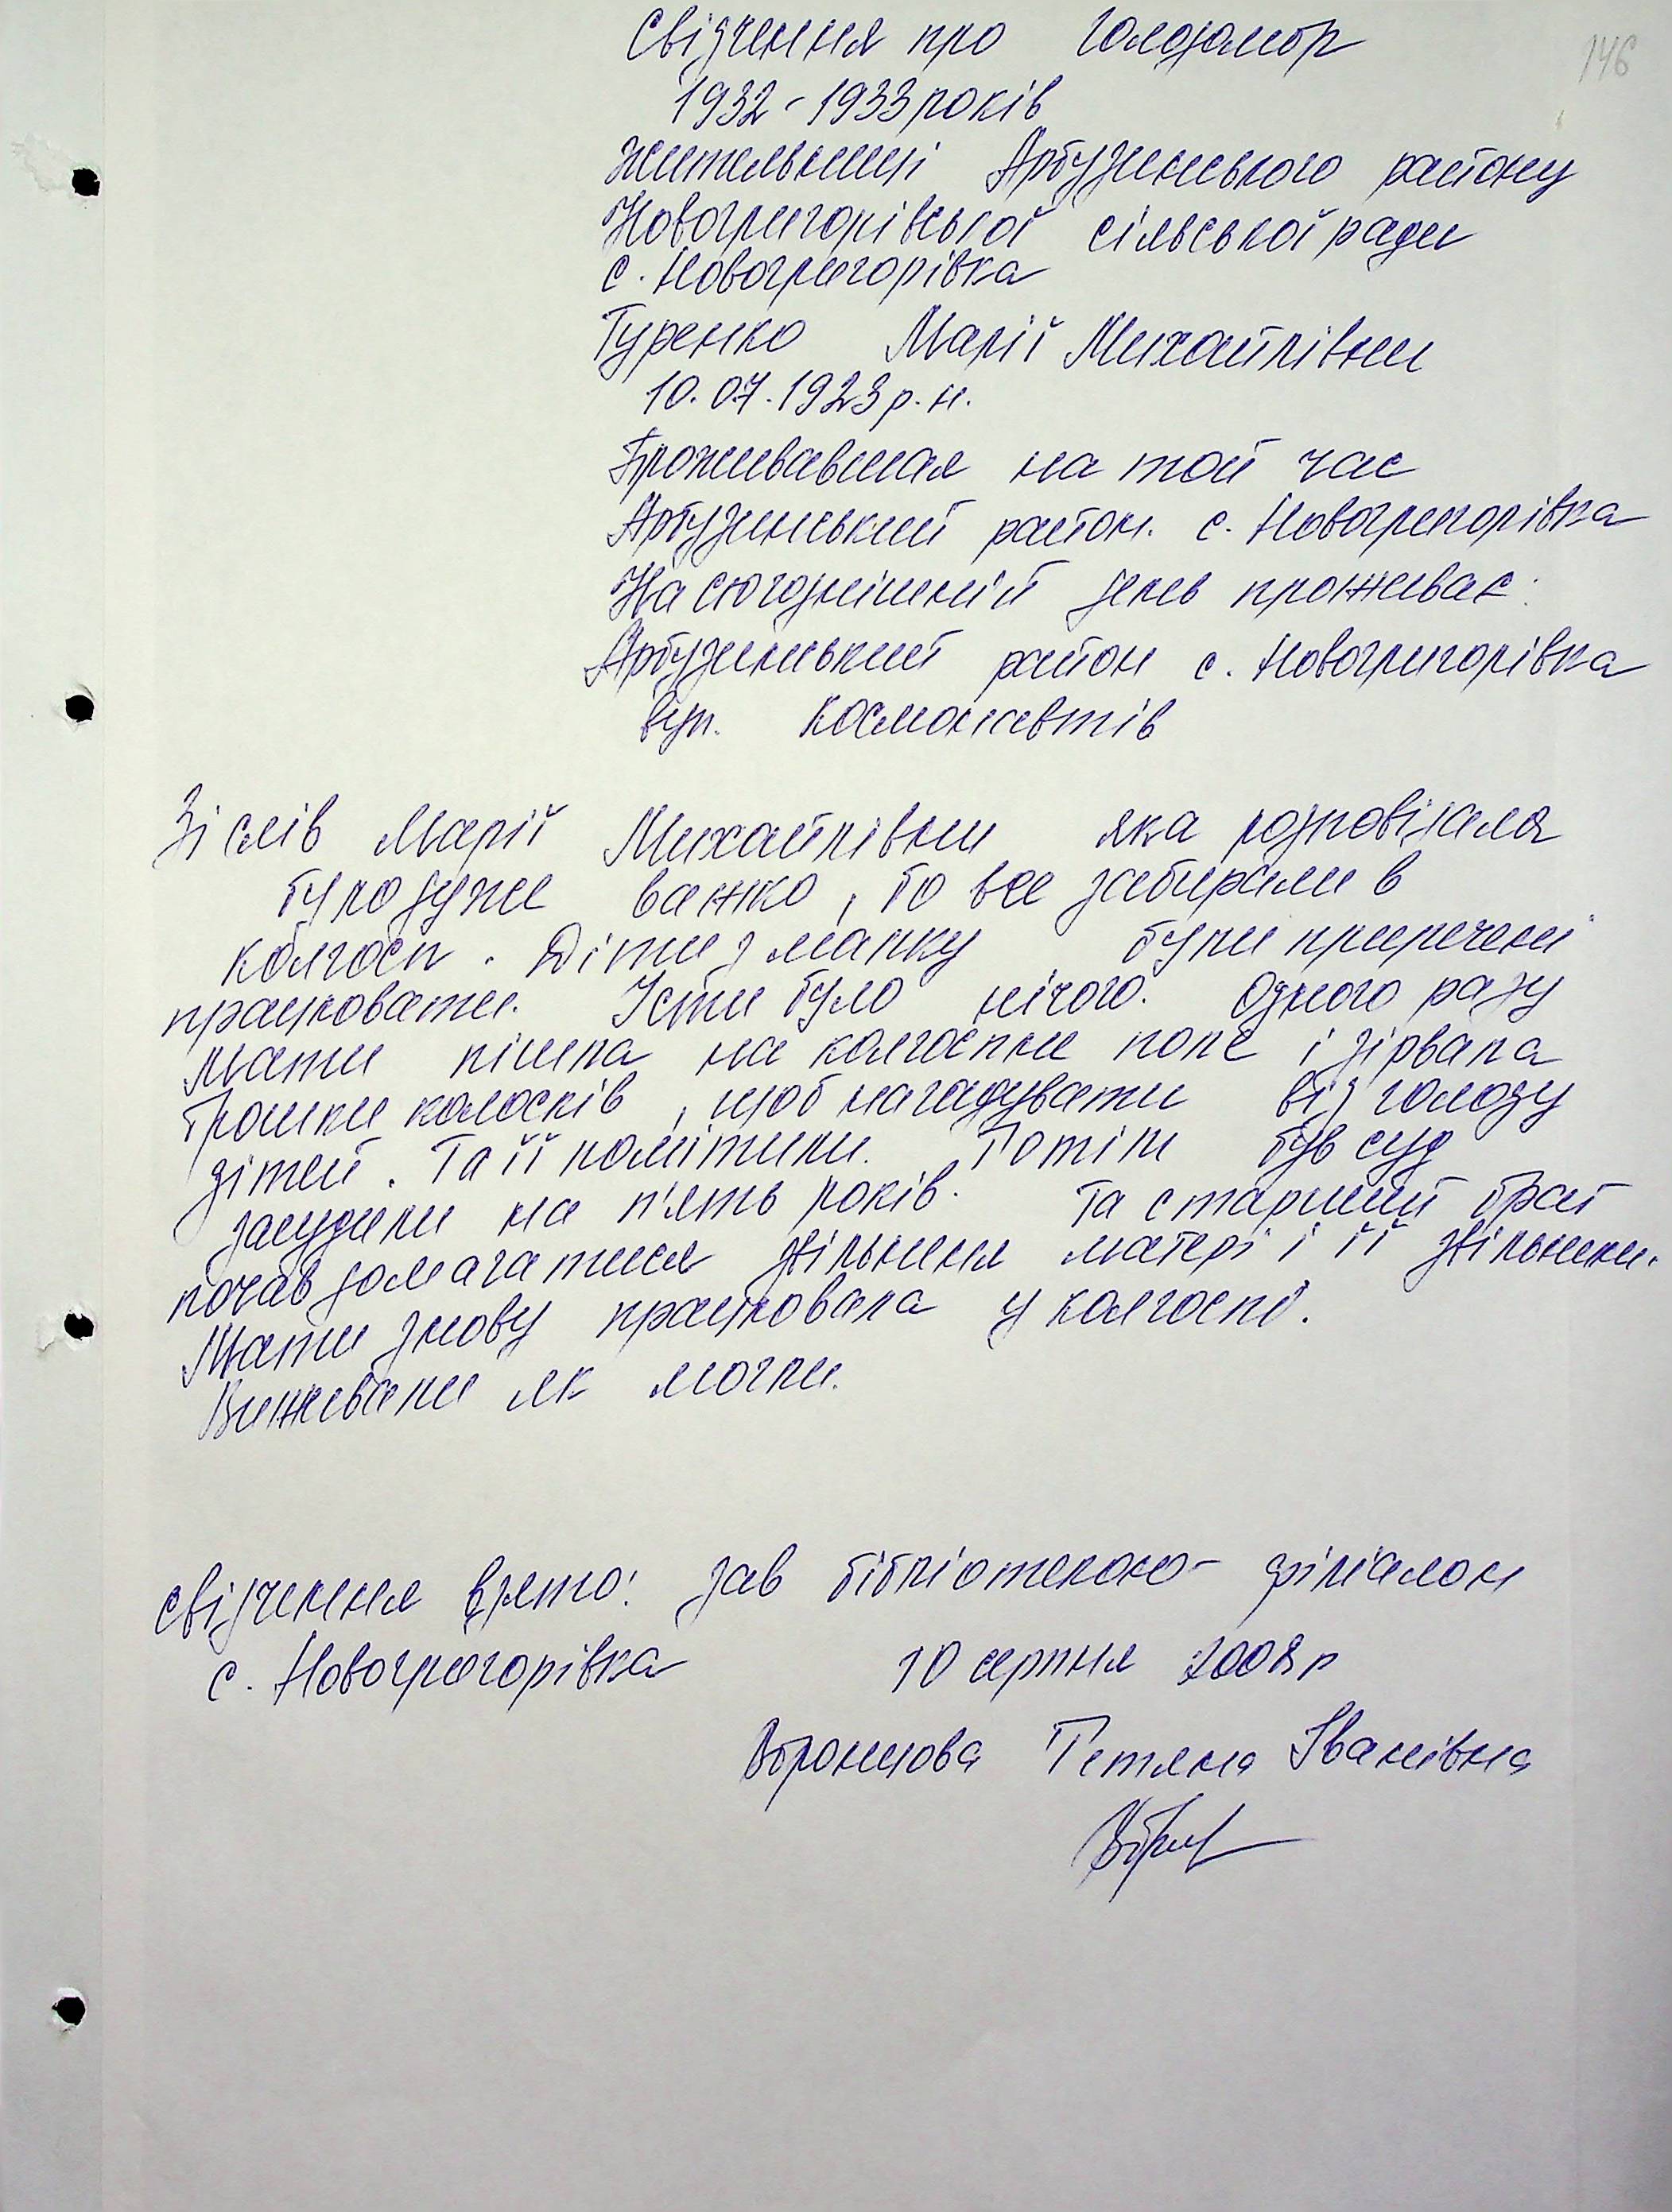 146
Свідчення про голодомор
1932-1933 років
Жительниці Арбузинського району
Новогригорівської сільської ради
с. Новогригорівка
Туренко Марії Михайлівни
10.07.1923 р.н.
Проживавшая на той час
Арбузинський район. с. Новогригорівка
На сюгоднішній день проживає:
Арбузинський район с. Новогригорівка
вул. Космонавтів
Зі слів Марії Михайлівни яка розповідала
було дуже важко, бо все забирали в
колгосп. Діти з малку були приречені
працювати. Їсти було нічого. Одного разу
мати пішла на колгоспне поле і зірвала
трошки колосків, щоб нагадувати від голоду
дітей. Та її помітили. Потім був суд
засудили на п'ять років. Та старший брат
почав домагатися звільнення матері і її звільнили.
Мати знову працювала у колгоспі.
Виживали як могли.
свідчення взято: зав бібліотекою-філіалом
с. Новогригорівка 10 серпня 2008 р
Воронцова Тетяна Іванівна